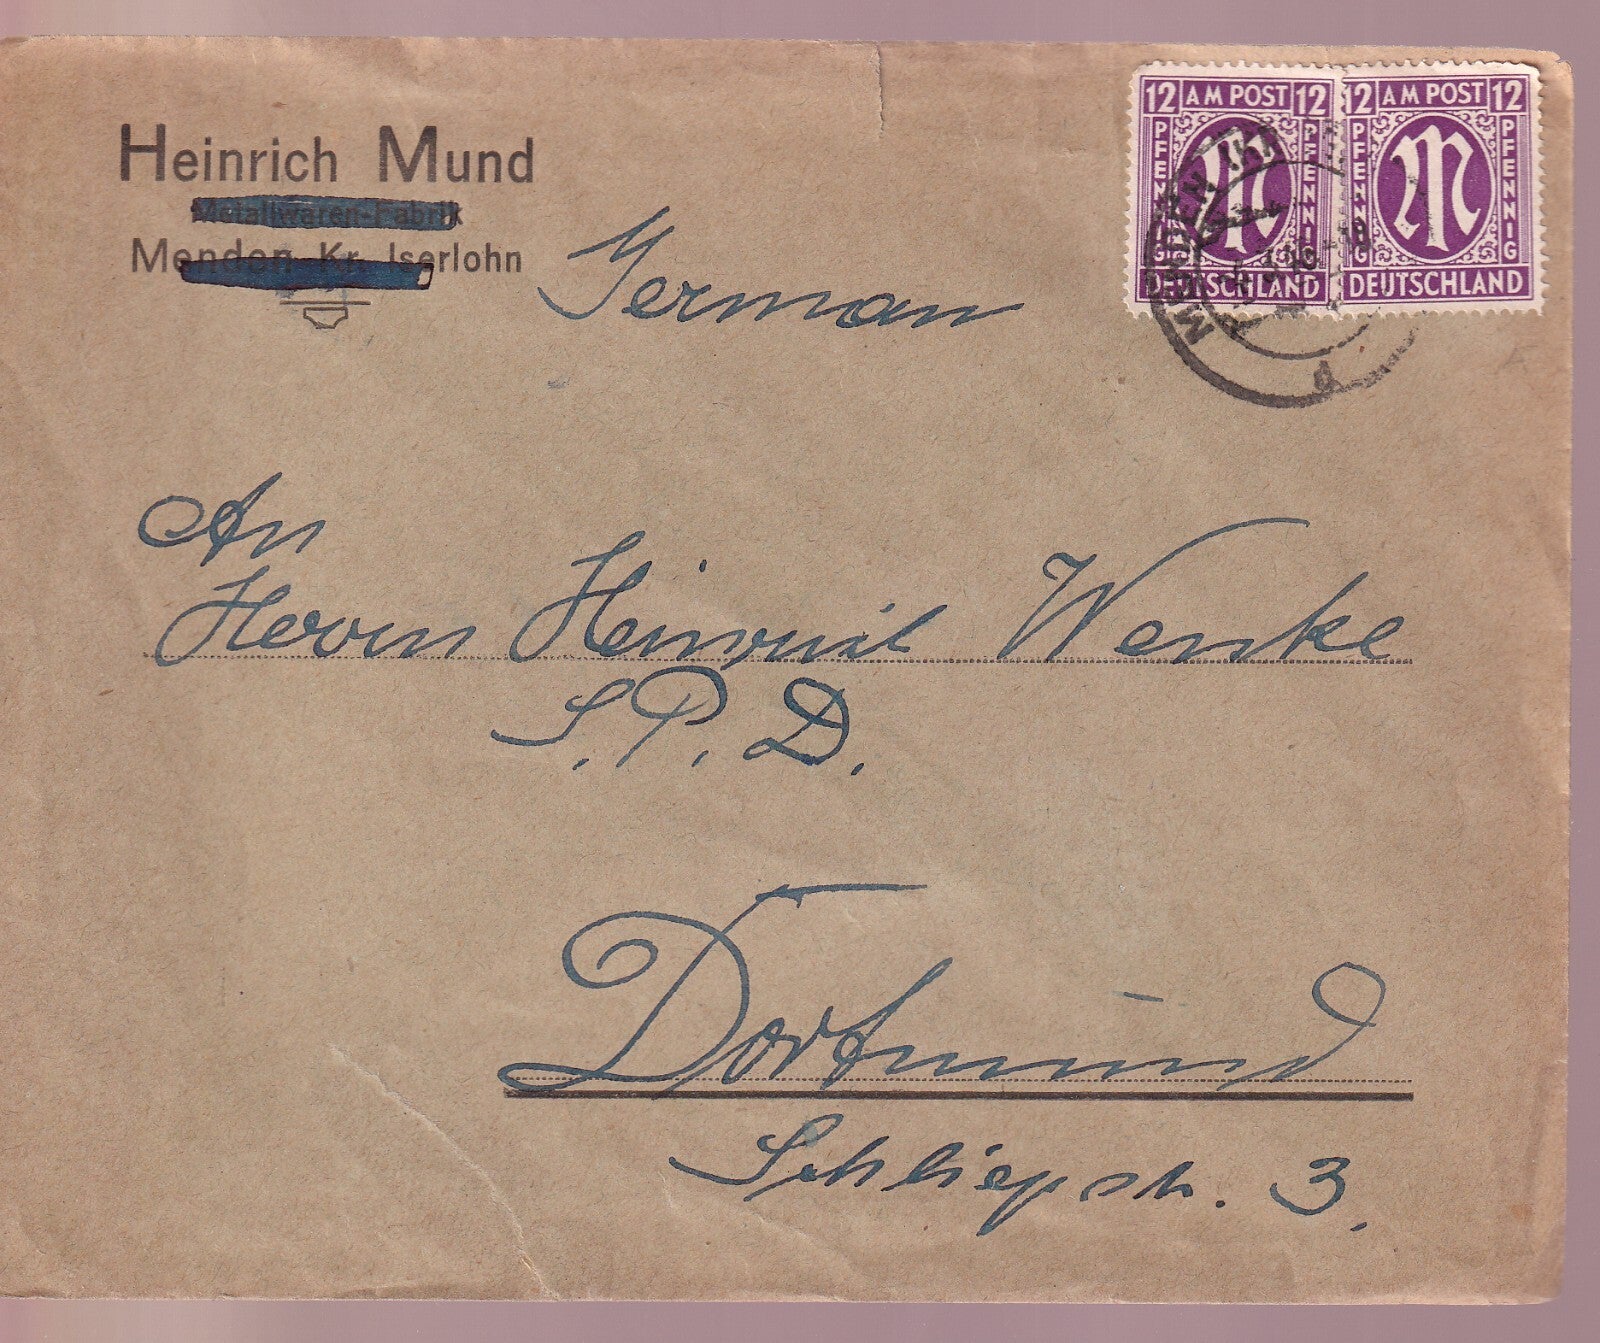 Heinrich Mund
Metallwaren-Fabrik
Menden Kr. Iserlohn
German
12 AM POST 12
PFENNIG PFENNIG
DEUTSCHLAND
12 AM POST 12
PFENNIG PFENNIG
DEUTSCHLAND
MENDEN (KR
d
An
Herrn Heinrich Wenke
S.P.D.
Dortmund
Schliepstr. 3.